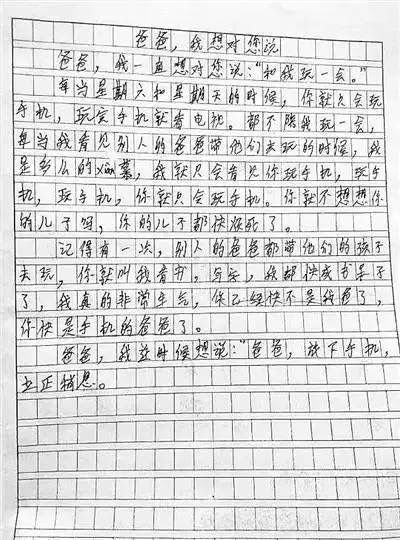 爸爸，我想对您说
爸爸，我一直想对您说：“和我玩一会。”
每当星期六和星期天的时候，你就只会玩
手机，玩完手机就看电视。都不陪我玩一会，
每当我看见别人的爸爸带他们去玩的时候，我
是多么的xiàn慕，我就只会看见你玩手机，玩手
机，玩手机，你就只会玩手机。你就不想想你
的儿子吗，你的儿子都快疯死了。
记得有一次，别人的爸爸都带他们的孩子
去玩，你就叫我看书，写字，我都快成书呆子
了，我真的非常生气，你已经快不是我爸了，
你快是手机的爸爸了。
爸爸，我这时候想说：“爸爸，放下手机，
。